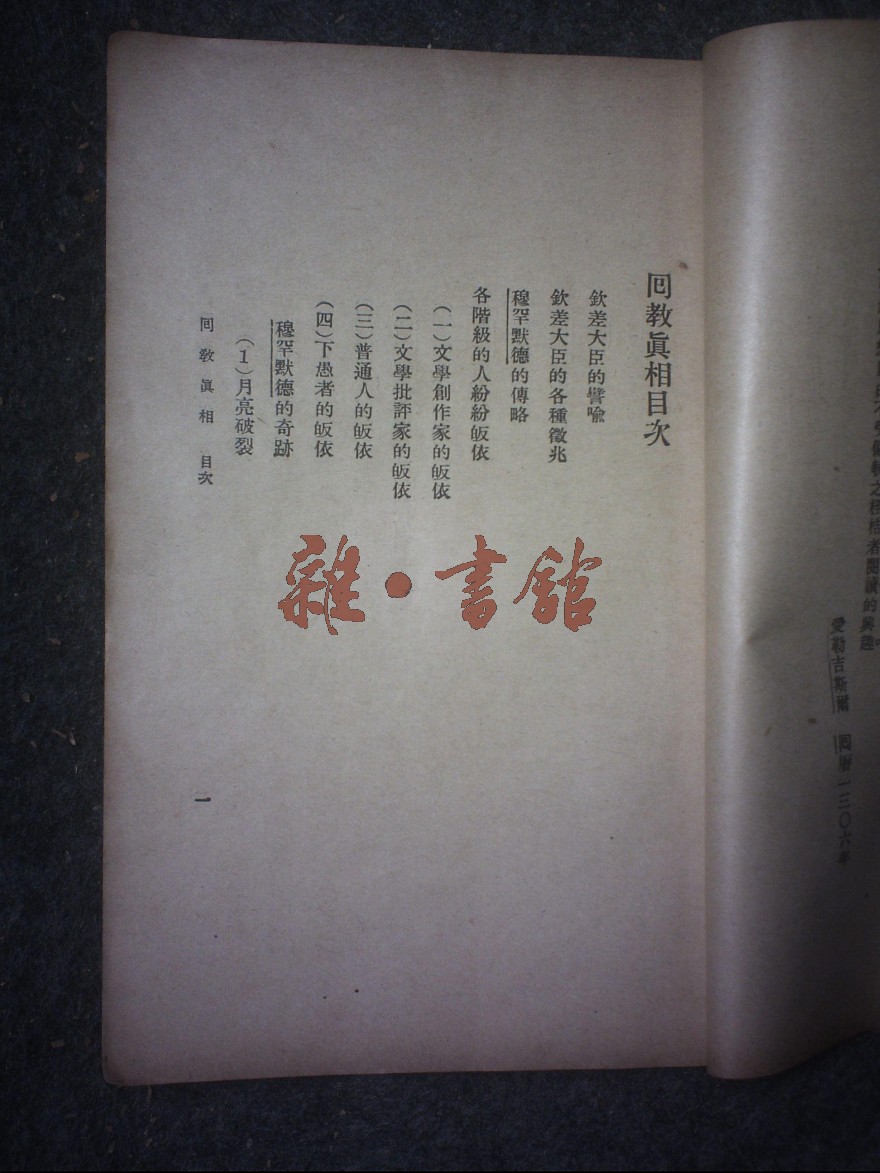 之桎梏者閱讀的興趣
愛勒吉斯爾 囘曆一三〇六年
囘教眞相目次
欽差大臣的譬喩
欽差大臣的各種徵兆
穆罕默德的傳略
各階級的人紛紛皈依
（一）文學創作家的皈依
（二）文學批評家的皈依
（三）普通人的皈依
（四）下愚者的皈依
穆罕默德的奇跡
（1）月亮破裂
囘敎眞相 目次
一
雜·書館